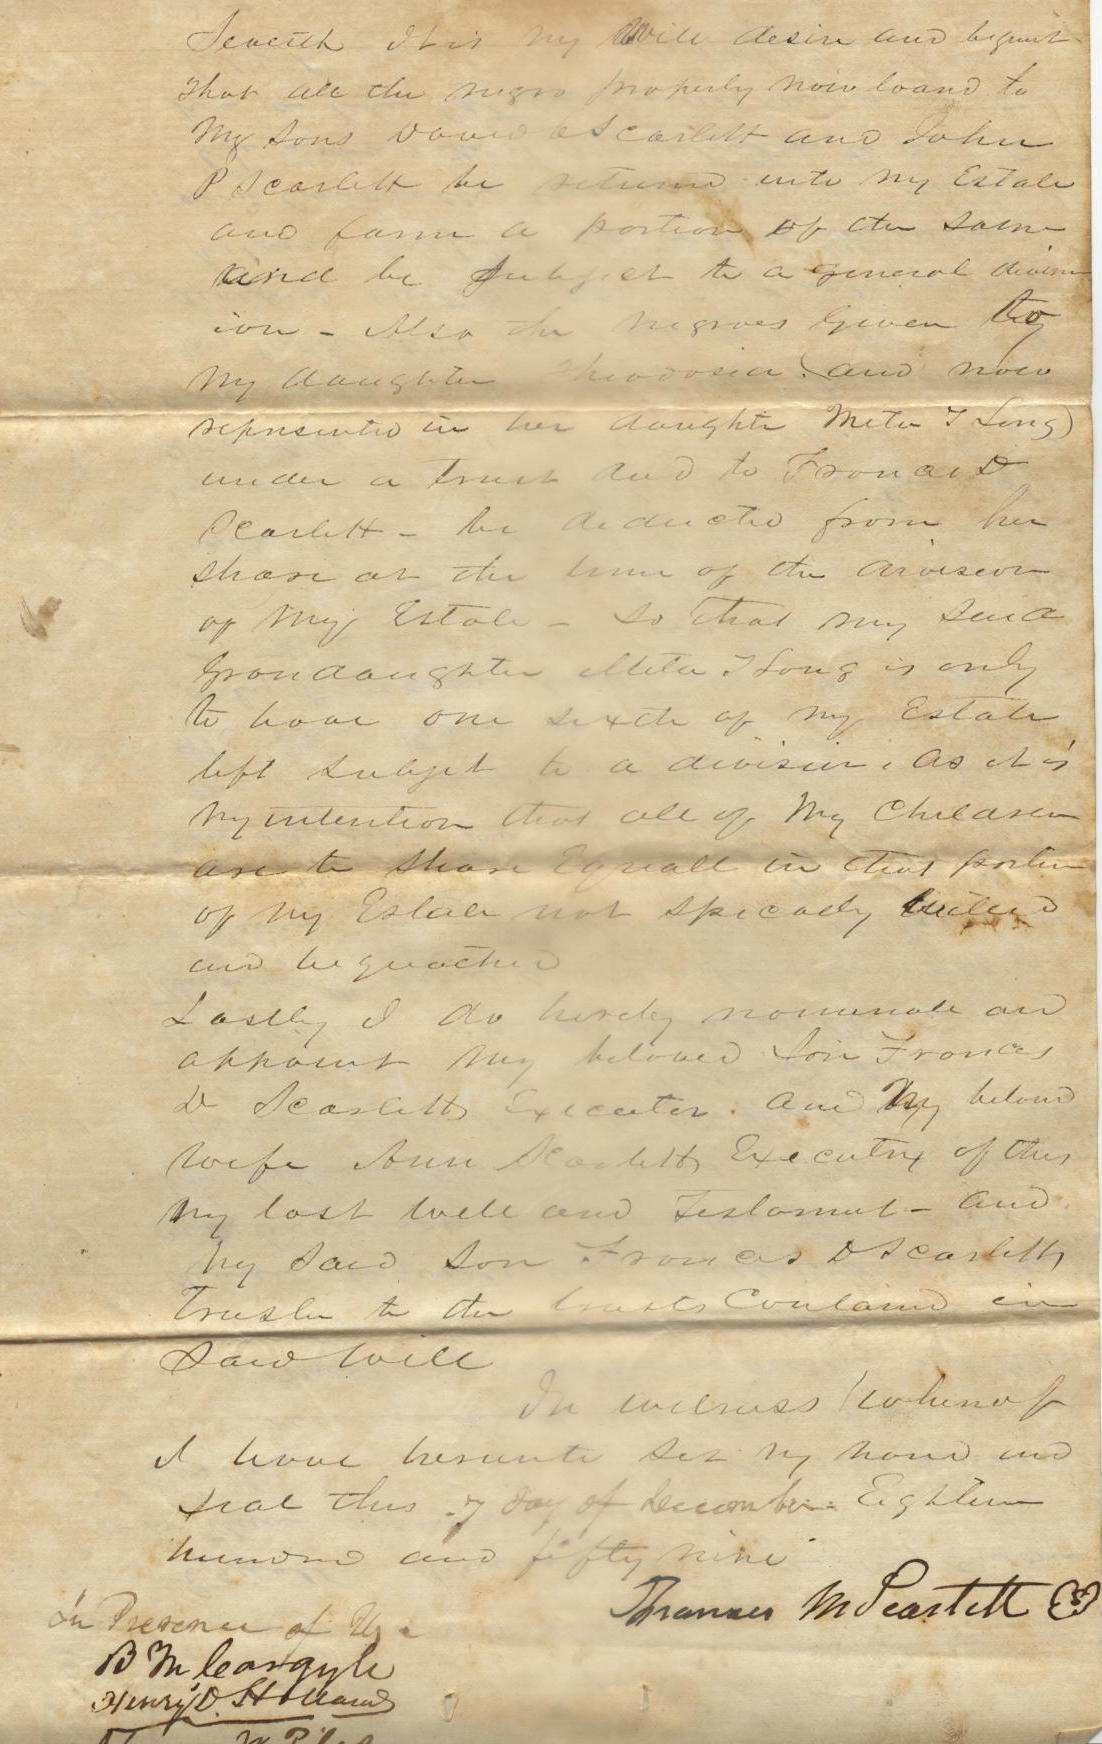 Seventh It is my Will desire and bequest
that all the negro property now loand to
My Sons David Scarlett and John
P Scarlett be returned into my Estate
and form a portion of the same
and be Subject to a general divis
ion - Also the negroes Given to
My daughter Theodosia (and now
represented in her daughter Meta T Long)
under a trust deed to Francis D
Scarlett - be deducted from her
share at the time of the division
of My Estate - So that my said
Grandaughter Meta T Long is only
to have one sixth of my Estate
left subject to a division, as it is
my intention that all of My Children
are to share Equall in that portion
of my Estate not specialy willed
and bequeathed
Lastly I do hereby nominate and
appoint my beloved Son Francis
D Scarlett Executor. and My beloved
wife Ann Scarlett Executrix of this
my last will and Testament - and
my said Son Francis D Scarlett
Trustee to the trusts Contained in
Said Will
In witness whereof
I have hereunto set my hand and
seal this 7 day of December Eighteen
hundred and fifty nine
Francis M Scarlett
In Presence of Us
B M Cargyle
Henry D. Holland